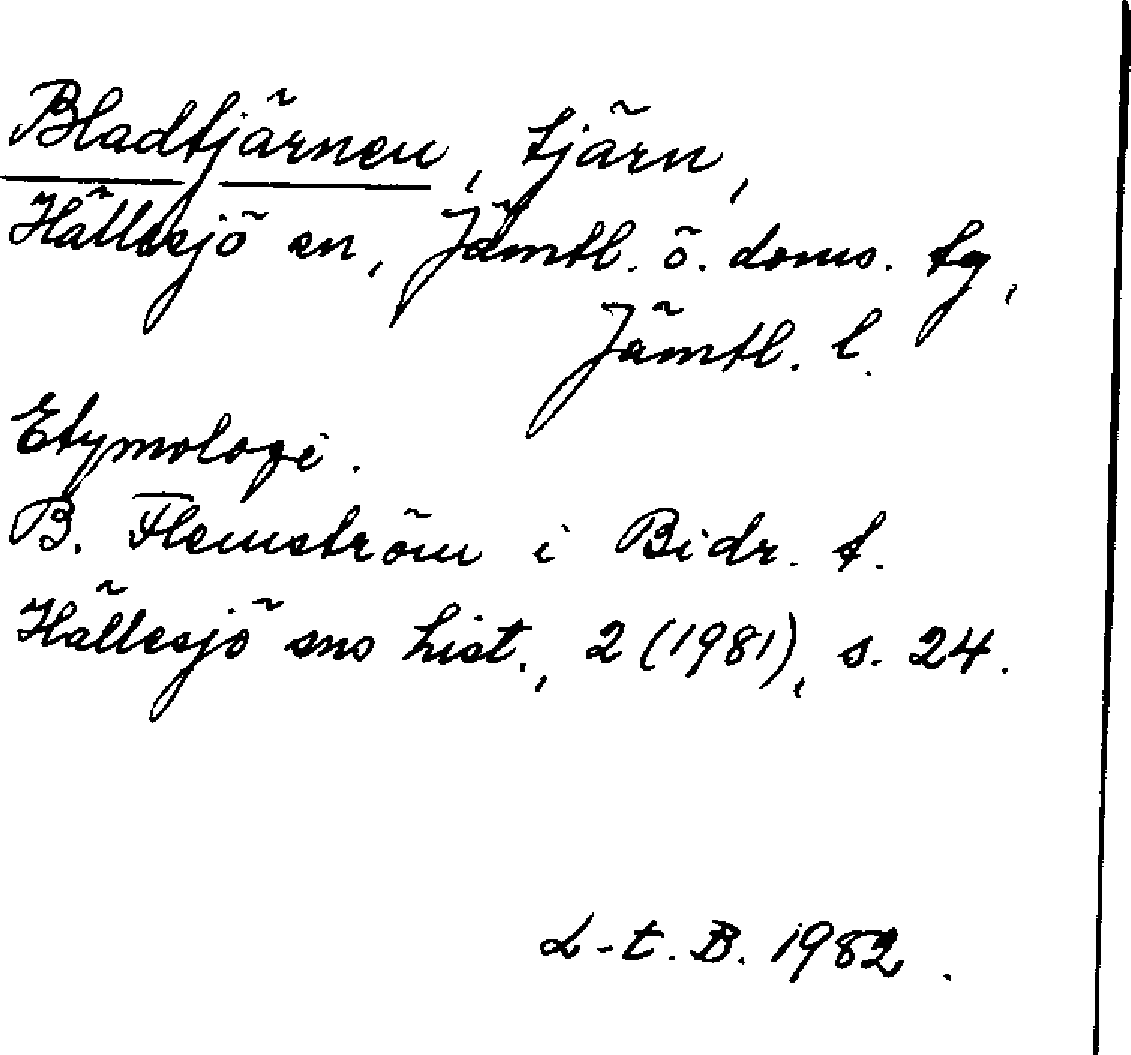 Bladtjärnen, tjärn,
Hällesjö sn, Jämtl. ö. doms. tg,
Jämtl. l.
Etymologi.
B. Flemström i Bidr. t.
Hällesjö sns hist., 2 (1981), s. 24.
L-t. B. 1982.